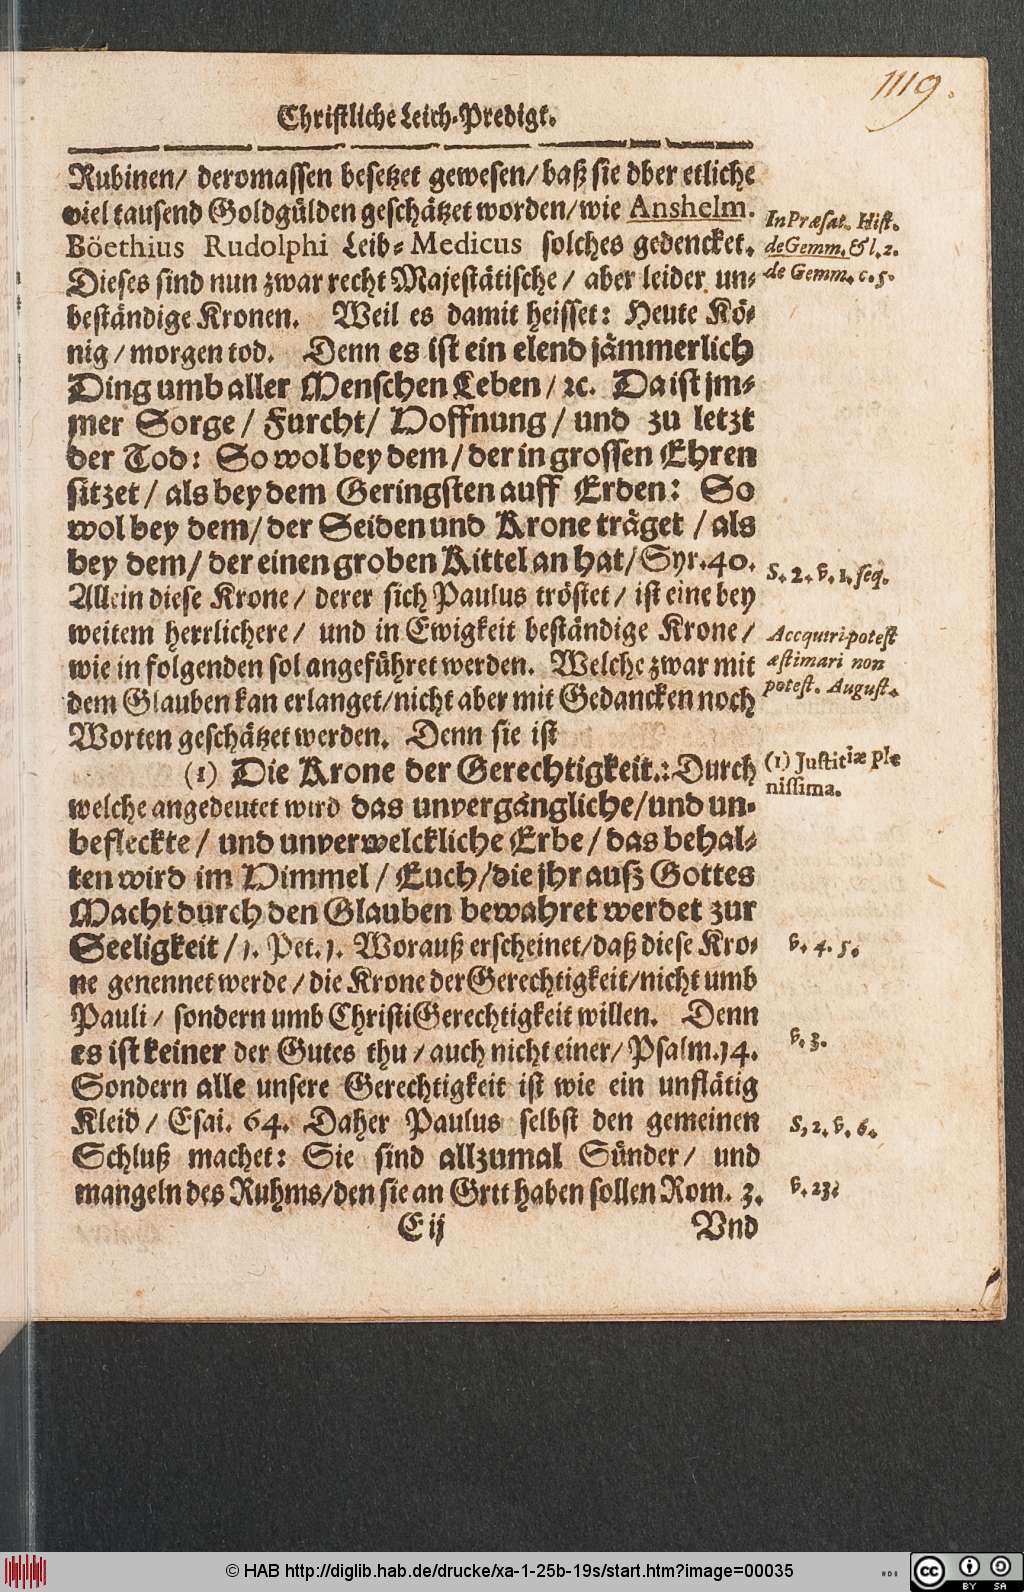 1119.
Christliche Leich-Predigt.
Rubinen/ deromassen besetzet gewesen/ baß sie dber etliche
viel tausend Goldgülden geschätzet worden/ wie Anshelm.
Böethius Rudolphi Leib-Medicus solches gedencket.
Dieses sind nun zwar recht Majestätische/ aber leider un-
beständige Kronen. Weil es damit heisset: Heute Kö-
nig/ morgen tod. Denn es ist ein elend jämmerlich
Ding umb aller Menschen Leben/ ꝛc. Da ist jm-
mer Sorge/ Furcht/ Hoffnung/ und zu letzt
der Tod: So wol bey dem/ der in grossen Ehren
sitzet/ als bey dem Geringsten auff Erden: So
wol bey dem/ der Seiden und Krone träget/ als
bey dem/ der einen groben Kittel an hat/ Syr. 40.
Allein diese Krone/ derer sich Paulus tröstet/ ist eine bey
weitem herrlichere/ und in Ewigkeit beständige Krone/
wie in folgenden sol angeführet werden. Welche zwar mit
dem Glauben kan erlanget/ nicht aber mit Gedancken noch
Worten geschätzet werden. Denn sie ist
(1) Die Krone der Gerechtigkeit.: Durch
welche angedeutet wird das unvergängliche/ und un-
befleckte/ und unverwelckliche Erbe/ das behal-
ten wird im Himmel/ Euch/ die jhr auß Gottes
Macht durch den Glauben bewahret werdet zur
Seeligkeit/ 1. Pet. 1. Worauß erscheinet/ daß diese Kro-
ne genennet werde/ die Krone der Gerechtigkeit/ nicht umb
Pauli/ sondern umb Christi Gerechtigkeit willen. Denn
es ist keiner der Gutes thu/ auch nicht einer/ Psalm. 14.
Sondern alle unsere Gerechtigkeit ist wie ein unflätig
Kleid/ Esai. 64. Daher Paulus selbst den gemeinen
Schluß machet: Sie sind allzumal Sünder/ und
mangeln des Ruhms/ den sie an Grtt haben sollen Rom. 3.
E ij Vnd
In Præfat. Hist.
de Gemm. & l. 2.
de Gemm. c. 5.
S. 2. v. 1. seq.
Accquiri potest
æstimari non
potest. August.
(1) Justitiæ ple
nissima.
v. 4. 5.
v. 3.
S, 2. v. 6.
v. 23.
© HAB http://diglib.hab.de/drucke/xa-1-25b-19s/start.htm?image=00035
cc BY SA